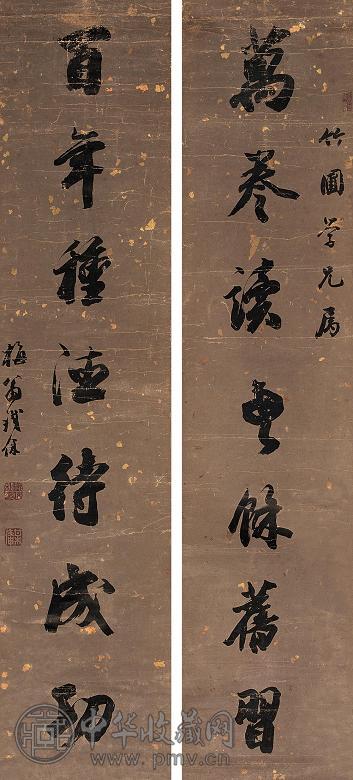 竹圃学兄属
萬卷讀書餘舊習
百年種德待成功
中华收藏网
www.pmv.cn